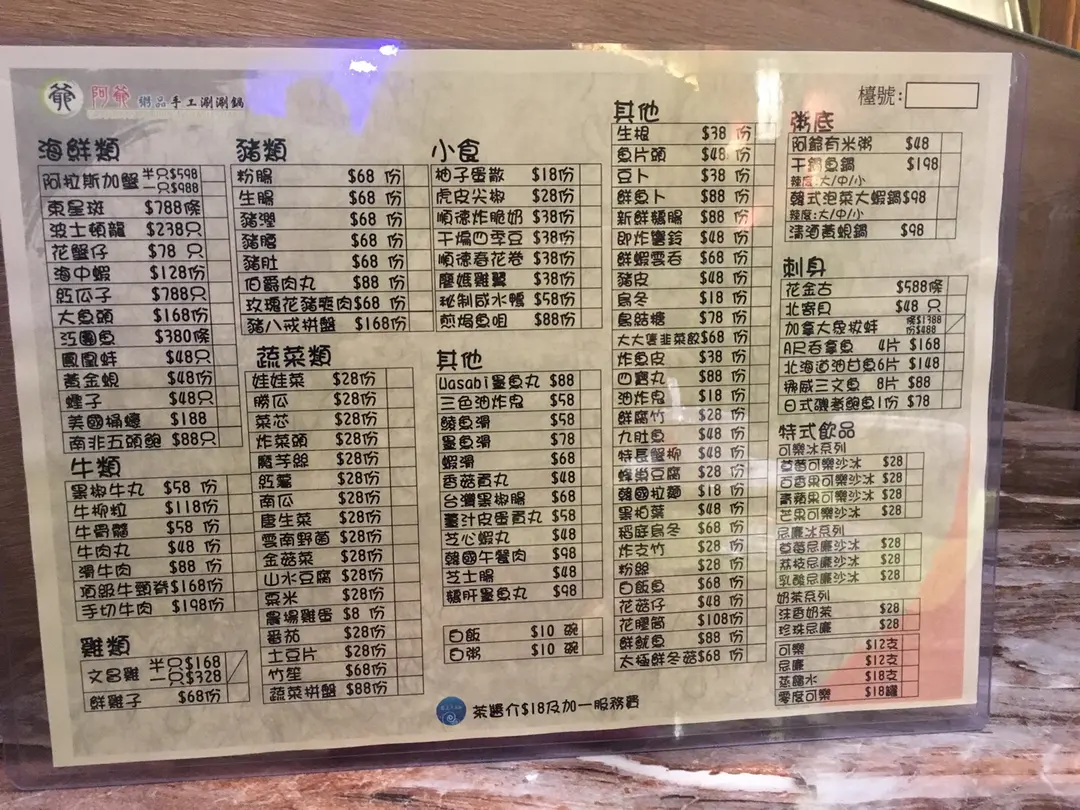 爺 阿爺 粥品手工涮涮鍋
檯號:
海鮮類
阿拉斯加蟹 半只$598 一只$988
東星斑 $788條
波士頓龍 $238只
花蟹仔 $78 只
海中蝦 $128份
魟瓜子 $788只
大魚頭 $168份
$380條
鳳凰蚌 $48只
黃金蜆 $48份
蟶子 $48只
美國桶蠔 $188
南非五頭鮑 $88只
牛類
黑椒牛丸 $58 份
牛柳粒 $118份
牛骨髓 $58 份
牛肉丸 $48 份
滑牛肉 $88 份
頂級牛頸脊$168份
手切牛肉 $198份
雞類
文昌雞 半只$168 一只$328
鮮雞子 $68份
豬類
粉腸 $68 份
生腸 $68 份
豬潤 $68 份
$68 份
豬肚 $68 份
伯爵肉丸 $88 份
玫瑰花豬爽肉$68 份
豬八戒拼盤 $168份
蔬菜類
娃娃菜 $28份
勝瓜 $28份
菜芯 $28份
炸菜頭 $28份
魔芋絲 $28份
$28份
南瓜 $28份
唐生菜 $28份
雲南野菌 $28份
金菇菜 $28份
山水豆腐 $28份
粟米 $28份
農場雞蛋 $8 份
番茄 $28份
土豆片 $28份
竹笙 $68份
蔬菜拼盤 $88份
小食
柚子蛋散 $18份
虎皮尖椒 $28份
順德炸脆奶 $38份
干煸四季豆 $38份
順德春花卷 $38份
麼媽雞翼 $38份
秘制咸水鴨 $58份
煎焗魚咀 $88份
其他
Wasabi墨魚丸 $88
三色油炸鬼 $58
鯪魚滑 $58
墨魚滑 $78
蝦滑 $68
香菇貢丸 $48
台灣黑椒腸 $68
薑汁皮蛋貢丸 $58
芝心蝦丸 $48
韓國午餐肉 $98
芝士腸 $48
鵝肝墨魚丸 $98
白飯 $10 碗
白粥 $10 碗
茶醬介$18及加一服務費
其他
生根 $38 份
魚片頭 $48 份
豆卜 $38 份
鮮魚卜 $88 份
新鮮鵝腸 $88 份
即炸響鈴 $48 份
鮮蝦雲吞 $68 份
豬皮 $48 份
烏冬 $18 份
烏結糖 $78 份
大大隻韭菜餃$68 份
炸魚皮 $38 份
四寶丸 $88 份
油炸鬼 $18 份
鮮腐竹 $28 份
九肚魚 $48 份
特長蟹柳 $48 份
蜂巢豆腐 $28 份
韓國拉麵 $18 份
黑柏葉 $48 份
稻庭烏冬 $68 份
炸支竹 $28 份
粉絲 $28 份
白飯魚 $68 份
花菇仔 $48 份
花膠筒 $108份
鮮魷魚 $88 份
太極鮮冬菇$68 份
粥底
阿爺有米粥 $48
干鍋魚鍋 $198
辣度:大/中/小
韓式泡菜大蝦鍋$98
辣度:大/中/小
清酒黃蜆鍋 $98
刺身
花金古 $588條
北寄貝 $48 只
加拿大象拔蚌 條$1388 份$488
A尺吞拿魚 4片 $168
北海道油甘魚6片 $148
挪威三文魚 8片 $88
日式磯煮鮑魚1份 $78
特式飲品
可樂冰系列
草莓可樂沙冰 $28
百香果可樂沙冰 $28
青蘋果可樂沙冰 $28
芒果可樂沙冰 $28
忌廉冰系列
草莓忌廉沙冰 $28
荔枝忌廉沙冰 $28
乳酸忌廉沙冰 $28
奶茶系列
沫香奶茶 $28
珍珠忌廉 $28
可樂 $12支
忌廉 $12支
蒸餾水 $18支
零度可樂 $18罐